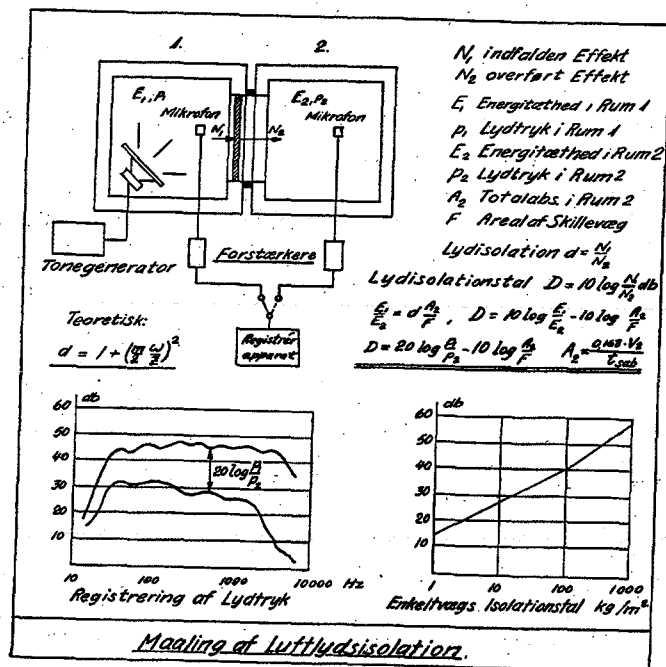 1.
2.
E₁, p₁
Mikrofon
N₁
N₂
E₂, p₂
Mikrofon
Tonegenerator
Forstærkere
Registrér
apparat
N₁ indfalden Effekt
N₂ overført Effekt
E₁ Energitæthed i Rum 1
p₁ Lydtryk i Rum 1
E₂ Energitæthed i Rum 2
p₂ Lydtryk i Rum 2
A₂ Totalabs. i Rum 2
F Areal af Skillevæg
Lydisolation d = N₁/N₂
Lydisolationstal D = 10 log N₁/N₂ db
E₁/E₂ = d A₂/F, D = 10 log E₁/E₂ - 10 log A₂/F
D = 20 log p₁/p₂ - 10 log A₂/F A₂ = 0,163·V₂/t sab
Teoretisk:
d = 1 + (m/2 ω/2)²
db
60
50
40
30
20
10
20 log p₁/p₂
10 100 1000 10000 Hz
Registrering af Lydtryk
db
60
50
40
30
20
10
1 10 100 1000
Enkeltvægs Isolationstal kg/m²
Maaling af Luftlydsisolation.